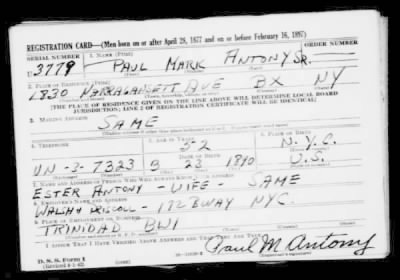 REGISTRATION CARD—(Men born on or after April 28, 1877 and on or before February 16, 1897)
SERIAL NUMBER 1. NAME (Print) ORDER NUMBER
U3779 PAUL MARK ANTONY SR.
2. PLACE OF RESIDENCE (Print)
2830 NARRAGANSETT AVE BX NY
[THE PLACE OF RESIDENCE GIVEN ON THE LINE ABOVE WILL DETERMINE LOCAL BOARD
JURISDICTION; LINE 2 OF REGISTRATION CERTIFICATE WILL BE IDENTICAL]
3. MAILING ADDRESS
SAME
4. TELEPHONE 5. AGE IN YEARS 6. PLACE OF BIRTH
52 N.Y.C.
DATE OF BIRTH
UN-3-7323 8 23 1890 U.S.
7. NAME AND ADDRESS OF PERSON WHO WILL ALWAYS KNOW YOUR ADDRESS
ESTER ANTONY - WIFE - SAME
8. EMPLOYER'S NAME AND ADDRESS
WALSH DRISCOLL - BWAY NYC.
9. PLACE OF EMPLOYMENT OR BUSINESS
TRINIDAD BWI
I AFFIRM THAT I HAVE VERIFIED ABOVE ANSWERS AND THAT THEY ARE TRUE.
D. S. S. Form 1
(Revised 4-1-42)
Paul M Antony